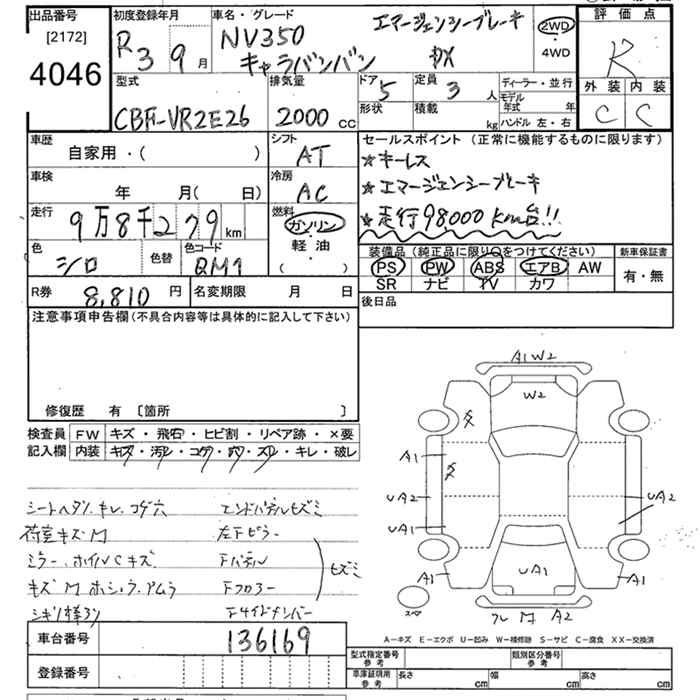 出品番号 初度登録年月 車名・グレード エマージェンシーブレーキ 2WD 評価点
[2172] R3 9月 NV350 DX ・ R
4046 キャラバンバン 4WD
型式 排気量 ドア 定員 ディーラー・並行 外装 内装
5 3人 モデル年式 年
CBF-VR2E26 2000cc 形状 積載 kg ハンドル 左・右 C C
車歴 シフト セールスポイント (正常に機能するものに限ります)
自家用・( ) AT ☆キーレス
車検 冷房 ☆エマージェンシーブレーキ
年 月( 日) AC ☆走行98,000km台!!
走行 燃料
9万8千279km ガソリン・軽油・( )
色 色替 色コード 装備品 (純正品に限り○をつけてください) 新車保証書
シロ QM1 PS PW ABS エアB AW 有・無
R券 名変期限 月 日 SR ナビ TV カワ
8,810円 後日品
注意事項申告欄(不具合内容等は具体的に記入して下さい)
修復歴 有 [箇所 ]
検査員 FW キズ・飛石・ヒビ割・リペア跡・×要
記入欄 内装 キズ・汚レ・コゲ・穴・スレ・キレ・破レ
シートヘタリ.キレ.コゲ穴 エンドパネルヒズミ
荷室キズM 左下ピラー
ミラー.ホイルCキズ Fパネル
ヒズミ
キズM Fフロアー
Fサイドメンバー
A1W2
W2
A1
UA2
UA1
A1
UA2
A1
UA1
A2
スペア
車台番号 136169
A-キズ E-エクボ U-凹み W-補修跡 S-サビ C-腐食 XX-交換済
登録番号
型式指定番号 参考 類別区分番号 参考
車庫証明用 参考 長さ cm 幅 cm 高さ cm